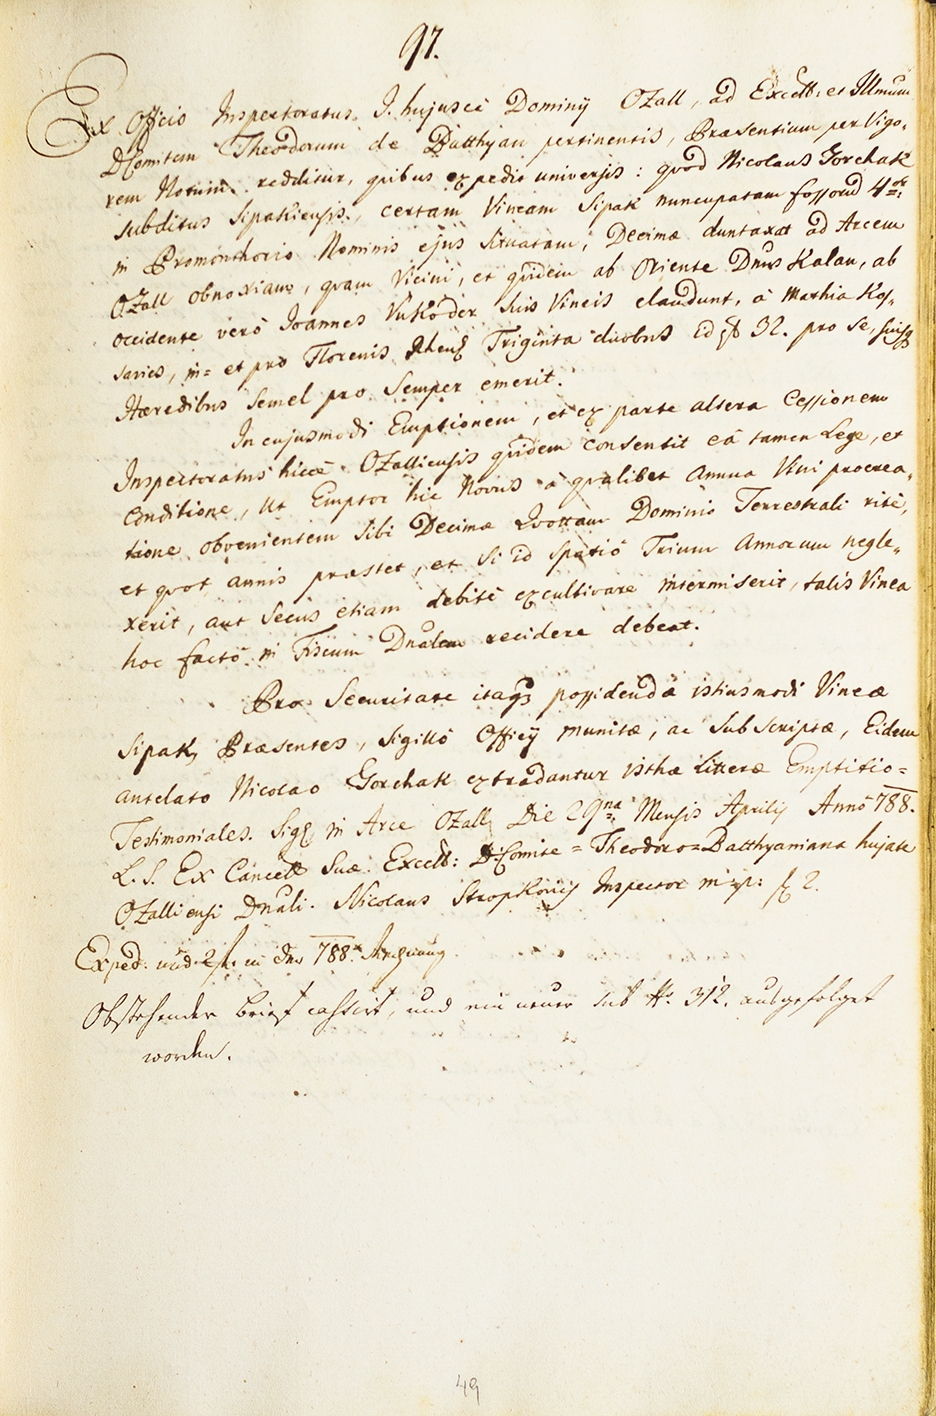 97.
Ex Officio Inspectoratus I. hujusce Dominij Ozall, ad Excell: et Illmum
DComitem Theodorum de Batthyan pertinentis, Præsentium per Vigo-
rem Notum redditur, quibus expedit universis: quod Nicolaus Gorchak
subditus Sipakiensis, certam Vineam Sipak nuncupatam fossorum 4or
in Promonthorio Nominis ejus situatam, Decimæ duntaxat ad Arcem
Ozall obnoxiam, quam Vicini, et quidem ab Oriente Dnus Kalan, ab
occidente verò Joannes Vukoder suis Vineis claudunt, à Mathia Kos-
sanies, in= et pro Florenis Rhen Triginta duobus id est 32. pro se, suisq
Hæredibus semel pro semper emerit.
In cujusmodi Emptionem, et ex parte altera Cessionem
Inspectoratus hicce Ozalliensis quidem consentit eâ tamen Lege, et
conditione, ut Emptor hic Novus à qualibet annua Vini procrea-
tione obvenientem sibi Decimæ Quottam Dominio Terrestrali ritè,
et quot annis præstet, et si id spatiô Trium Annorum negle-
xerit, aut secus etiam debitè excultivare intermiserit, talis Vinea
hoc factô in Fiscum Dnalem recidere debeat.
Pro Securitate itaq possidendæ istiusmodi Vineæ
Sipak, Præsentes, sigillô Officij munitæ, ac subscriptæ, Eidem
antelato Nicolao Gorchak extradantur isthæ Litteræ Emptitio=
Testimoniales. Sig in Arce Ozall Die 29na Mensis Aprilis Annô 788.
L. S. Ex Cancell Suæ Excell: DComite = Theodoro=Batthyaniana hujate
Ozalliensi Dnali. Nicolaus Stropkovij Inspector mpr: f 2.
Exped: und 2 f. in der 788 Rechnung
Obstehender brief cassirt, und ein neuer sub No 312. ausgefolget
worden.
49